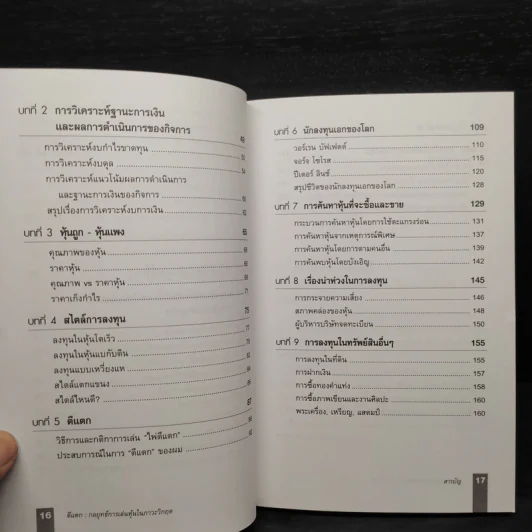 บทที่ 2 การวิเคราะห์ฐานะการเงิน
และผลการดำเนินการของกิจการ 49
การวิเคราะห์งบกำไรขาดทุน 50
การวิเคราะห์งบดุล
การวิเคราะห์แนวโน้มผลการดำเนินการ
และฐานะการเงินของกิจการ
สรุปเรื่องการวิเคราะห์งบการเงิน
บทที่ 3 หุ้นถูก - หุ้นแพง 65
คุณภาพของหุ้น
ราคาหุ้น
คุณภาพ vs ราคาหุ้น
ราคาเก็งกำไร 71
บทที่ 4 สไตล์การลงทุน 75
ลงทุนในหุ้นโตเร็ว
ลงทุนในหุ้นแบกับดิน
ลงทุนแบบเหวี่ยงแห
สไตล์แตกแขนง
สไตล์ไหนดี?
บทที่ 5 ตีแตก 87
วิธีการและกติกาการเล่น "ไพ่ตีแตก"
ประสบการณ์ในการ "ตีแตก" ของผม
16 ตีแตก : กลยุทธ์การเล่นหุ้นในภาวะวิกฤต
บทที่ 6 นักลงทุนเอกของโลก 109
วอร์เรน บัฟเฟตต์ 110
จอร์จ โซรอส 115
ปีเตอร์ ลินช์ 120
สรุปชีวิตของนักลงทุนเอกของโลก 128
บทที่ 7 การค้นหาหุ้นที่จะซื้อและขาย 129
กระบวนการค้นหาหุ้นโดยการใช้ตะแกรงร่อน 131
การค้นหาหุ้นจากเหตุการณ์พิเศษ 137
การค้นหาหุ้นโดยการตามคนอื่น 139
การค้นพบหุ้นโดยบังเอิญ 142
บทที่ 8 เรื่องน่าห่วงในการลงทุน 145
การกระจายความเสี่ยง 146
สภาพคล่องของหุ้น 148
ผู้บริหารบริษัทจดทะเบียน 150
บทที่ 9 การลงทุนในทรัพย์สินอื่นๆ 155
การลงทุนในที่ดิน 155
การฝากเงิน 157
การซื้อทองคำแท่ง 158
การซื้อภาพเขียนและงานศิลปะ 160
พระเครื่อง, เหรียญ, แสตมป์ 160
สารบัญ 17